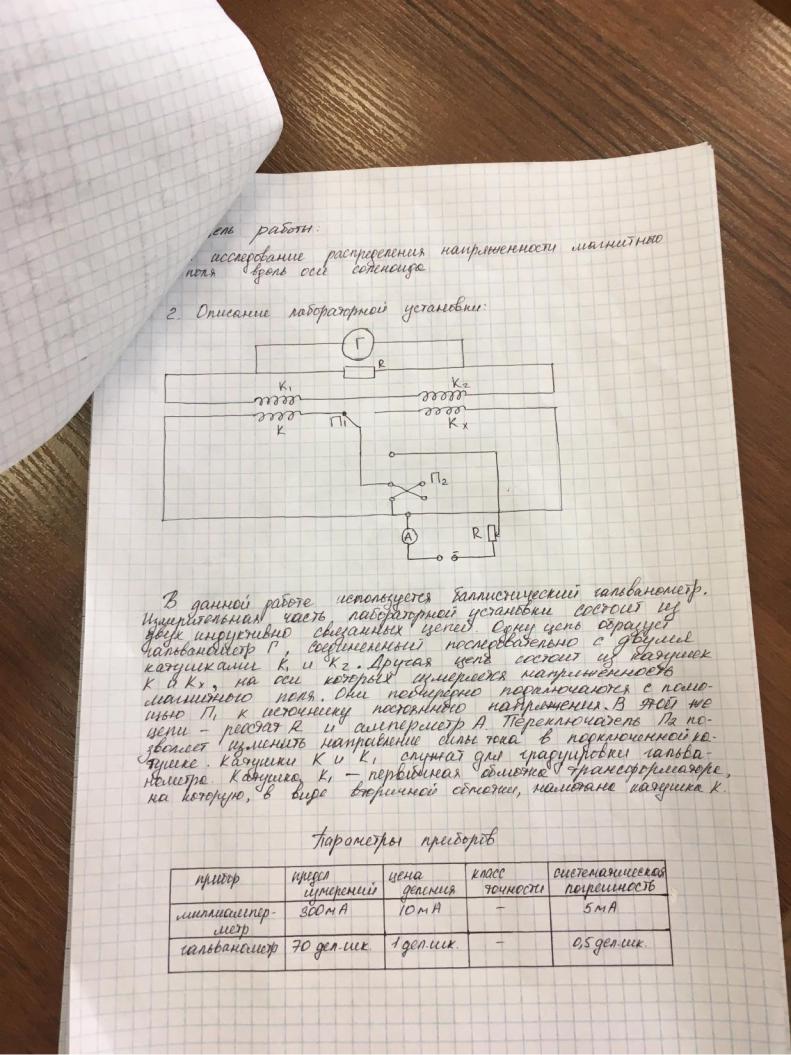 ель работы:
исследование распределения напряженности магнитного
поля вдоль оси соленоида
2. Описание лабораторной установки:
Г
R
K₁ K₂
K П₁ Kₓ
П₂
A R
В данной работе используется баллистический гальванометр.
Измерительная часть лабораторной установки состоит из
двух индуктивно связанных цепей. Одну цепь образует
гальванометр Г, соединенный последовательно с двумя
катушками K₁ и K₂. Другая цепь состоит из катушек
K и Kₓ, на оси которых измеряется напряженность
магнитного поля. Они поочередно подключаются с помо-
щью П₁ к источнику постоянного напряжения. В этой же
цепи – реостат R и амперметр А. Переключатель П₂ по-
зволяет изменить направление силы тока в подключенной ка-
тушке. Катушки K и K₁ служат для градуировки гальва-
нометра. Катушка K₁ – первичная обмотка трансформатора,
на которую, в виде вторичной обмотки, намотана катушка K.
Параметры приборов
прибор предел измерений цена деления класс точности систематическая погрешность
миллиампер-метр 300 мА 10 мА – 5 мА
гальванометр 70 дел.шк. 1 дел.шк. – 0,5 дел.шк.